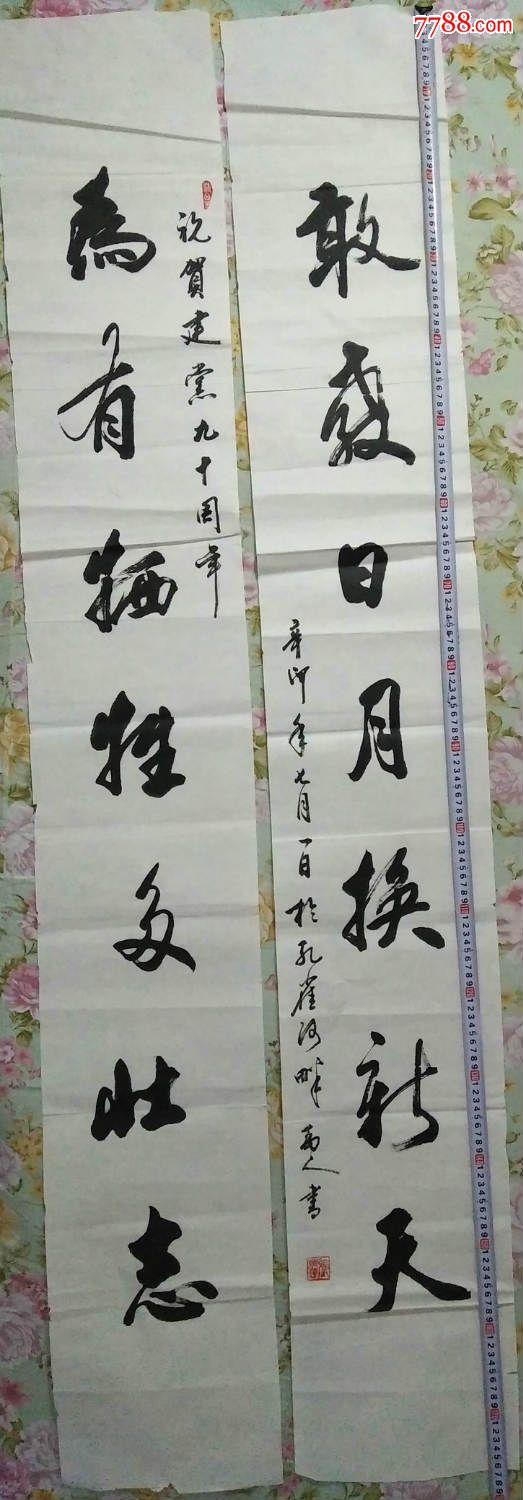 7788.com
為有牺牲多壮志
祝賀建黨九十周年
敢教日月换新天
辛卯年七月一日於孔雀河畔 書